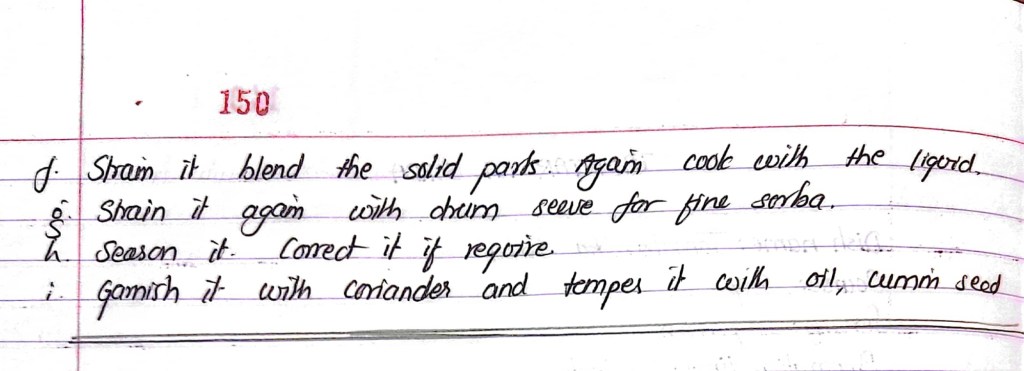 150
f. Strain it blend the solid parts. Again cook with the liquid.
g. Strain it again with drum seeve for fine sorba.
h. Season it. Correct it if requoire.
i. Garnish it with coriander and temper it with oil, cumin seed